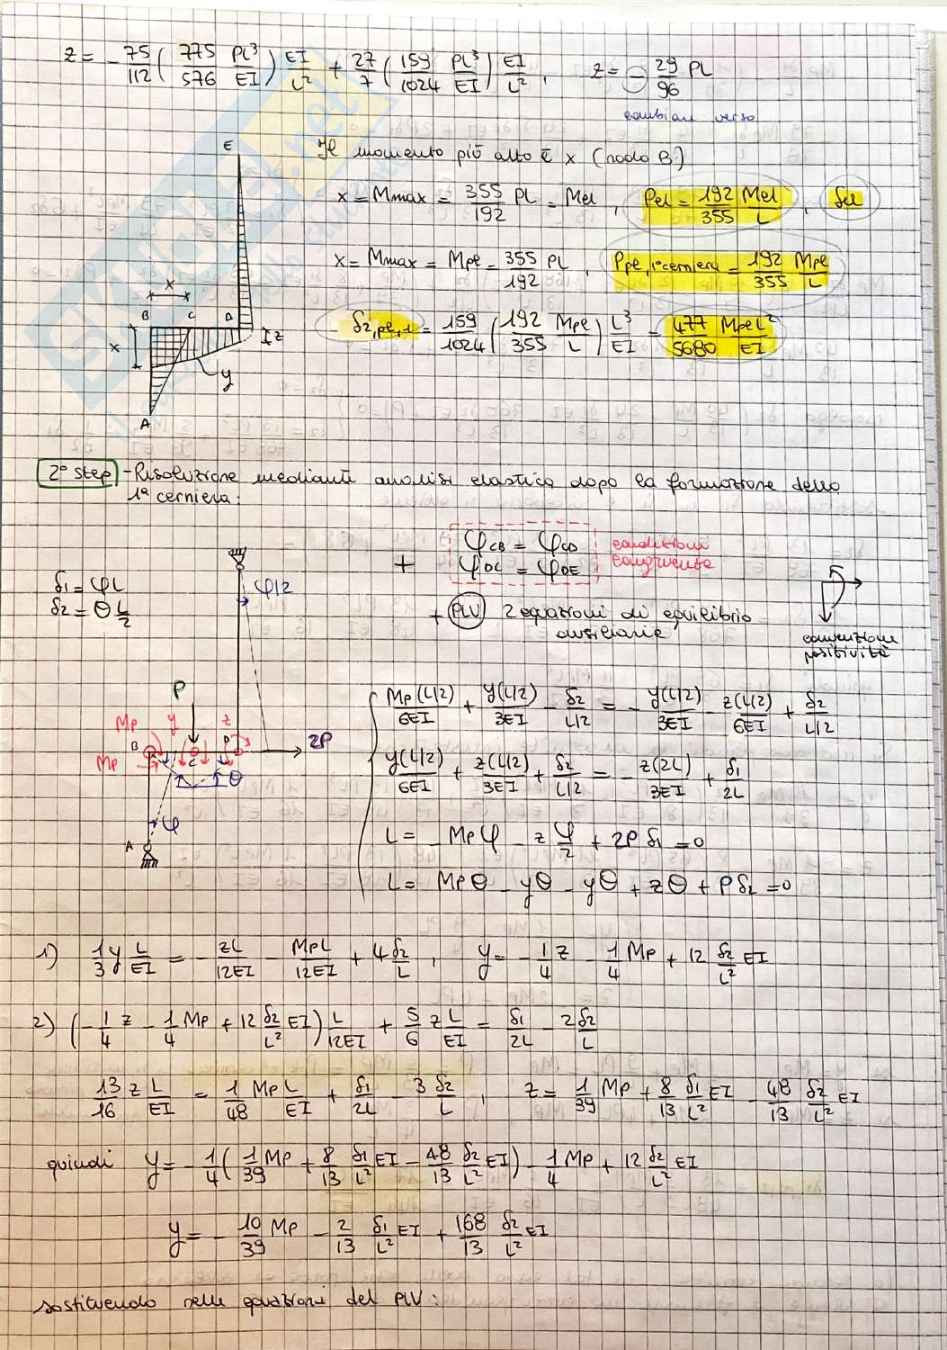 z = - 75/112 ( 775/576 PL³/EI ) EI/L² + 27/7 ( 159/1024 PL³/EI ) EI/L² , z = - 29/96 PL
cambiare verso
E
Il momento più alto è x (nodo B)
x = Mmax = 355/192 PL = Mel , Pel = 192/355 Mel/L ,
x = Mmax = Mpl = 355/192 PL , Ppl,1°cerniera = 192/355 Mpl/L
x
B C D
z
x
y
A
- δ2,pl,1 = 159/1024 ( 192/355 Mpl/L ) L³/EI = 477/5680 MplL²/EI
2° step - Risoluzione mediante analisi elastica dopo la formazione della
1ª cerniera:
δ1 = φL
δ2 = θ L/2
φ/2
+ φCB = φCD condizioni
φDC = φDE congruenza
+ PLV 2 equazioni di equilibrio
ausiliarie
convenzione
positività
P
Mp y z
B C D 2P
Mp
θ
φ
A
Mp(L/2)/6EI + y(L/2)/3EI - δ2/L/2 = - y(L/2)/3EI - z(L/2)/6EI + δ2/L/2
y(L/2)/6EI + z(L/2)/3EI + δ2/L/2 = - z(2L)/3EI + δ1/2L
L = - Mpφ - z φ/2 + 2P δ1 = 0
L = Mpθ - yθ - yθ + zθ + Pδ2 = 0
1) 1/3 y L/EI = - zL/12EI - MpL/12EI + 4 δ2/L , y = - 1/4 z - 1/4 Mp + 12 δ2/L² EI
2) ( - 1/4 z - 1/4 Mp + 12 δ2/L² EI ) L/12EI + 5/6 z L/EI = δ1/2L - 2 δ2/L
13/16 z L/EI = 1/48 MpL/EI + δ1/2L 3 δ2/L , z = 1/39 Mp + 8/13 δ1/L² EI - 48/13 δ2/L² EI
quindi y = - 1/4 ( 1/39 Mp + 8/13 δ1/L² EI - 48/13 δ2/L² EI ) - 1/4 Mp + 12 δ2/L² EI
y = - 10/39 Mp - 2/13 δ1/L² EI + 168/13 δ2/L² EI
sostituendo nelle equazioni del PLV: